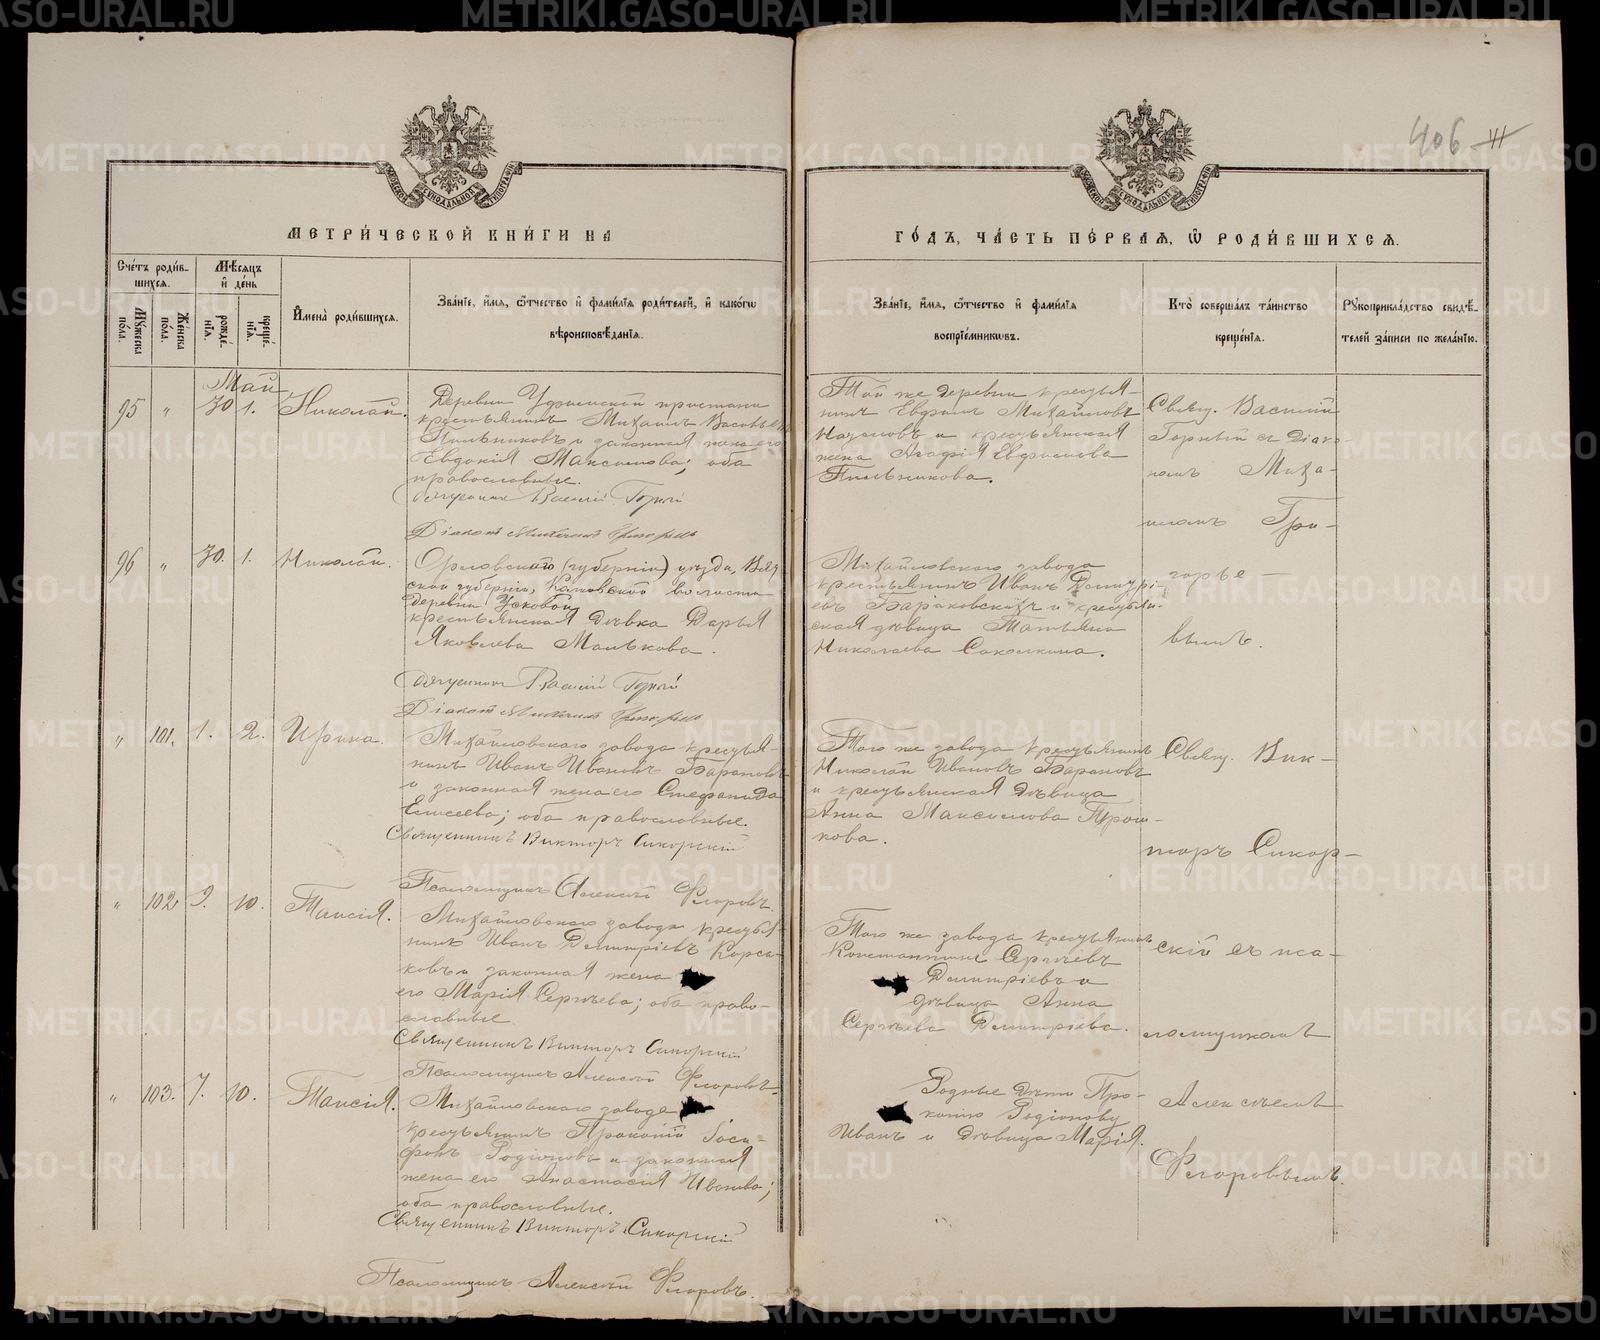 406
МЕТРИ́ЧЕСКОЙ КНИ́ГИ НА
ГО́ДЪ, ЧА́СТЬ ПЕ́РВАЯ, Ѡ РОДИ́ВШИХСЯ.
Сче́тъ роди́в-
шихся.
Мѣ́сяцъ
и де́нь
Му́жеска по́ла.
Же́нска по́ла.
рожде́-
нїя.
креще́-
нїя.
Имена̀ роди́вшихся.
Зва́нїе, и́мя, ѻ́тчество и фами́лїя роди́телей, и како́гѡ
вѣроисповѣ́данїя.
Зва́нїе, и́мя, ѻ́тчество и фами́лїя
воспрїе́мниковъ.
Кто̀ соверша́лъ та́инство
креще́нїя.
Рукоприкла́дство свидѣ́-
телей за́писи по жела́нїю.
Май
95 „ 30 1. Николай.
Деревни Уфимской пристани
крестьянинъ Михаилъ Васильевъ
Пильниковъ и законная жена его
Евдокія Максимова; оба
православные.
Священникъ Василій Горный
Діаконъ Михаилъ Григорьевъ
Той же деревни крестья-
нинъ Евфимъ Михайловъ
и крестьянская
жена Агафія Евфимова
Пильникова.
Свящ. Василій
Горный съ Діако-
номъ Миха-
иломъ Гри-
горье-
вымъ.
96 „ 30. 1. Николай.
Орловскаго (губерніи) уѣзда, Вят
ской губерніи, волости
деревни
крестьянская дѣвка Дарья
Яковлева Малькова.
Священникъ Василій Горный
Діаконъ Михаилъ Григорьевъ
Михайловскаго завода
крестьянинъ Иванъ Димитрі-
евъ и крестьян-
ская дѣвица Татьяна
Николаева Соколкина.
„ 101. 1. 2. Ирина.
Михайловскаго завода крестья-
нинъ Иванъ Ивановъ Барановъ
и законная жена его Стефанида
Елисеева; оба православные.
Священникъ Викторъ Сикорскій
Псаломщикъ Алексѣй Флоровъ.
Того же завода крестьянинъ
Николай Ивановъ Барановъ
и крестьянская дѣвица
Анна Максимова Трош-
кова.
Свящ. Вик-
торъ Сикор-
скій съ пса-
ломщикомъ
Алексѣемъ
Флоровымъ.
„ 102. 9. 10. Таисія.
Михайловскаго завода крестья-
нинъ Иванъ Димитріевъ Корса-
ковъ и законная жена
его Марія Сергѣева; оба право-
славные.
Священникъ Викторъ Сикорскій
Псаломщикъ Алексѣй Флоровъ
Того же завода крестьянинъ
Константинъ Сергѣевъ
Димитріевъ и
дѣвица Анна
Сергѣева Димитріева.
„ 103. 7. 10. Таисія.
Михайловскаго завода
крестьянинъ Прокопій Іоси-
фовъ Родіоновъ и законная
жена его Анастасія Иванова;
оба православные.
Священникъ Викторъ Сикорскій
Псаломщикъ Алексѣй Флоровъ.
Родные дѣти Про-
копію Родіонову
Иванъ и дѣвица Марія.
METRIKI.GASO-URAL.RU